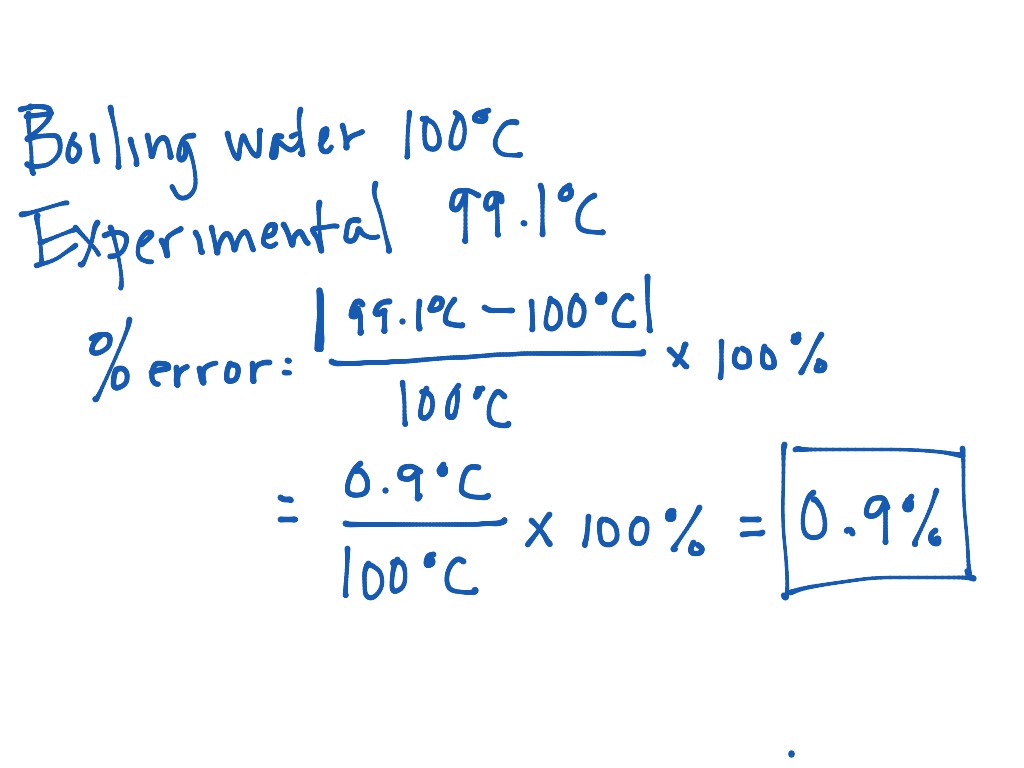 Boiling water 100°C
Experimental 99.1°C
% error = |99.1°C − 100°C| / 100°C × 100%
= 0.9°C / 100°C × 100% = 0.9%